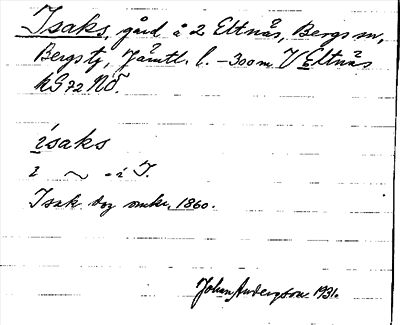 Isaks, gård å 2 Eltnäs, Bergs sn,
Bergs tg, Jämtl. l. -300m V Eltnäs
kG72NÖ.
isaks
i ~ - i J.
Isak dog omkr. 1860.
Johan Anderzson 1931.